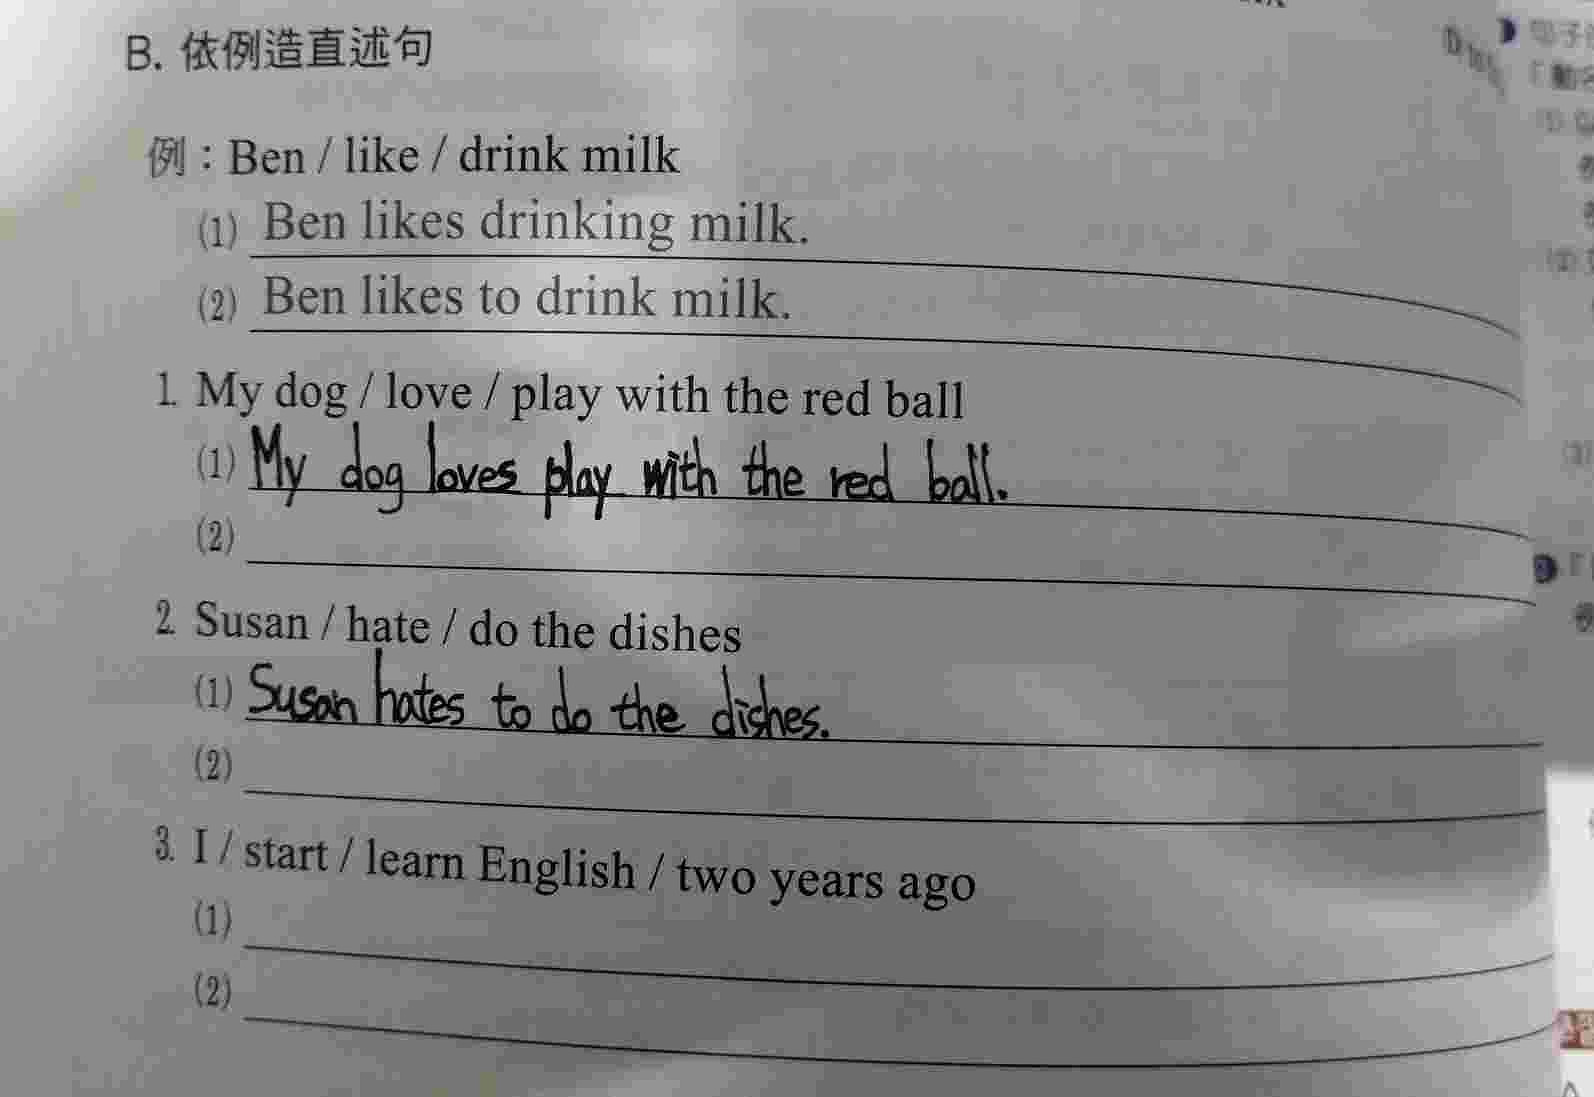 B. 依例造直述句
例：Ben / like / drink milk
(1) Ben likes drinking milk.
(2) Ben likes to drink milk.
1. My dog / love / play with the red ball
(1) My dog loves play with the red ball.
(2)
2. Susan / hate / do the dishes
(1) Susan hates to do the dishes.
(2)
3. I / start / learn English / two years ago
(1)
(2)